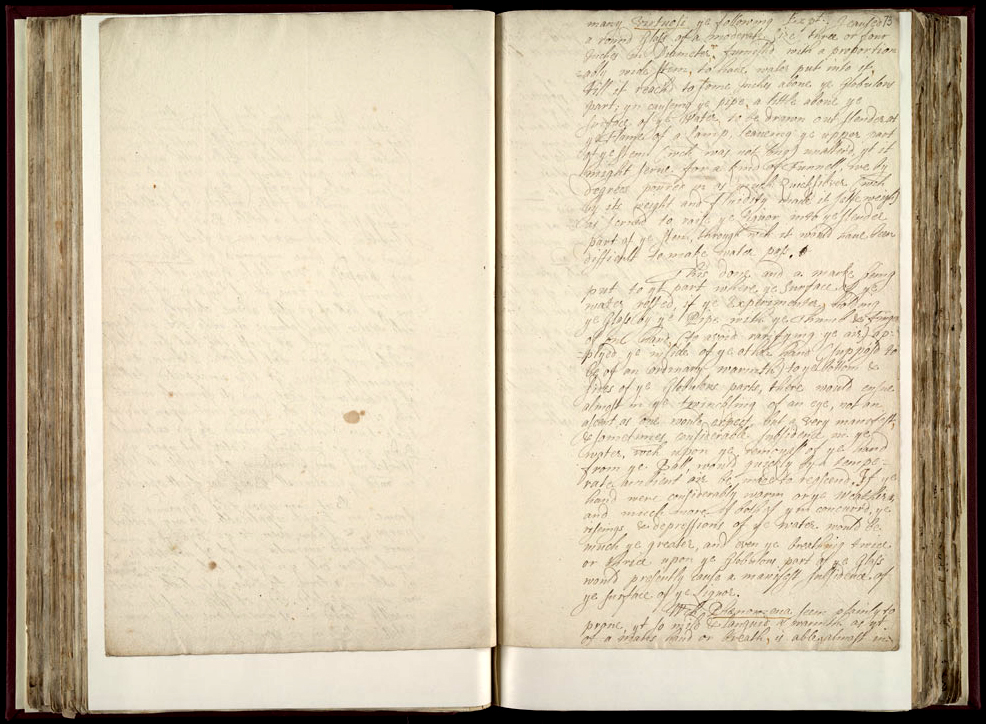 many Virtuosi, ye following Expt: I caused 73
a round Glass of a moderate size, three or four
Inches in Diameter, furnish'd with a proportion
ably wide stem, to have water put into it,
till it reach'd to some inches above ye Globulous
part; yn causing ye pipe, a little above ye
surface of ye Water, to be drawn out slender at
ye Flame of a lamp, leaveing ye upper part
of ye stem (wch was not long) unalterd, yt it
might serve for a kind of Funnell, we by
degrees power'd in as much Quicksilver (wch
by its weight and fluidity made it selfe weigh)
as serv'd to raise ye Liquor into ye slender
part of ye stem, through wch it would have been
difficult to make water pass.
This done and a marke being
put to yt part where ye surface of ye
water rested, if ye Experimenter, holding
ye Glass by ye Pipe with ye thumb & finger
of one hand (to avoid rarifying ye air) ap-
plyed ye inside of ye other hand (suppos'd to
be of an ordinary warmth) to ye bottom &
sides of ye Globulous parte, there would ensue
almost in ye twinckling of an eye, not an
ascent as one would expect, but a very manifest,
& sometimes, considerable subsidence in ye
water, wch upon ye removall of ye hand
from ye Ball, would quickly by a tempe-
rate ambient air be made to reascend. If ye
hand were considerably warm or ye
and much more if both of ym concurred, ye
risings, & depressions of ye Water would be
much ye greater, and even ye breathing twice
or thrice upon ye Globulous part of ye Glass
would presently cause a manifest subsidence of
ye surface of ye Liquor.
Wch Phaenomena seem plainly to
prove, yt so mild & languid, a warmth as yt
of a mans hand or breath, is able almost in